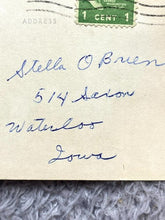 1 CENT 1
ADDRESS
Stella O'Brien
514 Saxon
Waterloo
Iowa